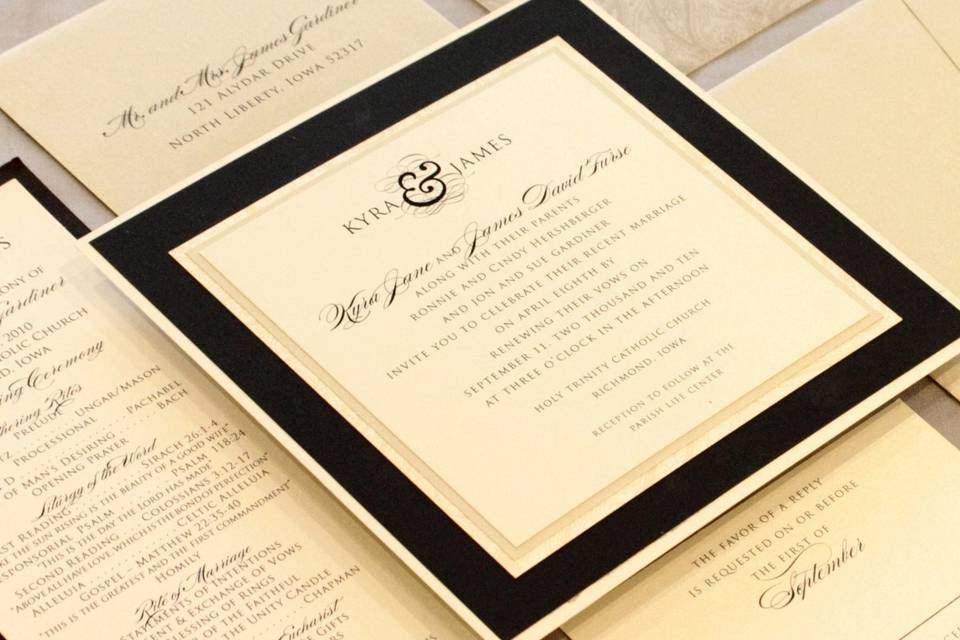 Mr. and Mrs. James Gardiner
121 Alydar Drive
North Liberty, Iowa 52317
KYRA & JAMES
Kyra Jane and James David Furse
along with their parents
Ronnie and Cindy Hershberger
and Jon and Sue Gardiner
invite you to celebrate their recent marriage
on April eighth by
renewing their vows on
September 11, two thousand and ten
at three o'clock in the afternoon
Holy Trinity Catholic Church
Richmond, Iowa
Reception to follow at the
Parish Life Center
The favor of a reply
is requested on or before
the first of
September
Gardiner
2010
Church
Iowa
Ceremony
Rites
Prelude
Ungar/Mason
Processional
Pachabel
of Man's Desiring
Bach
Opening Prayer
Liturgy of the Word
Sirach 26:1-4
the sun rising is the beauty of a good wife"
Psalm
Psalm 118:24
"This is the day the Lord has made"
Second Reading
Colossians 3:12-17
"Above all have love which is the bond of perfection"
Alleluia
Celtic Alleluia
Gospel
Matthew 22:35-40
"This is the greatest and the first commandment"
Homily
Rite of Marriage
Statements of Intentions
& Exchange of Vows
Blessing of Rings
of the Faithful
Unity Candle
Chapman
Eucharist
Gifts